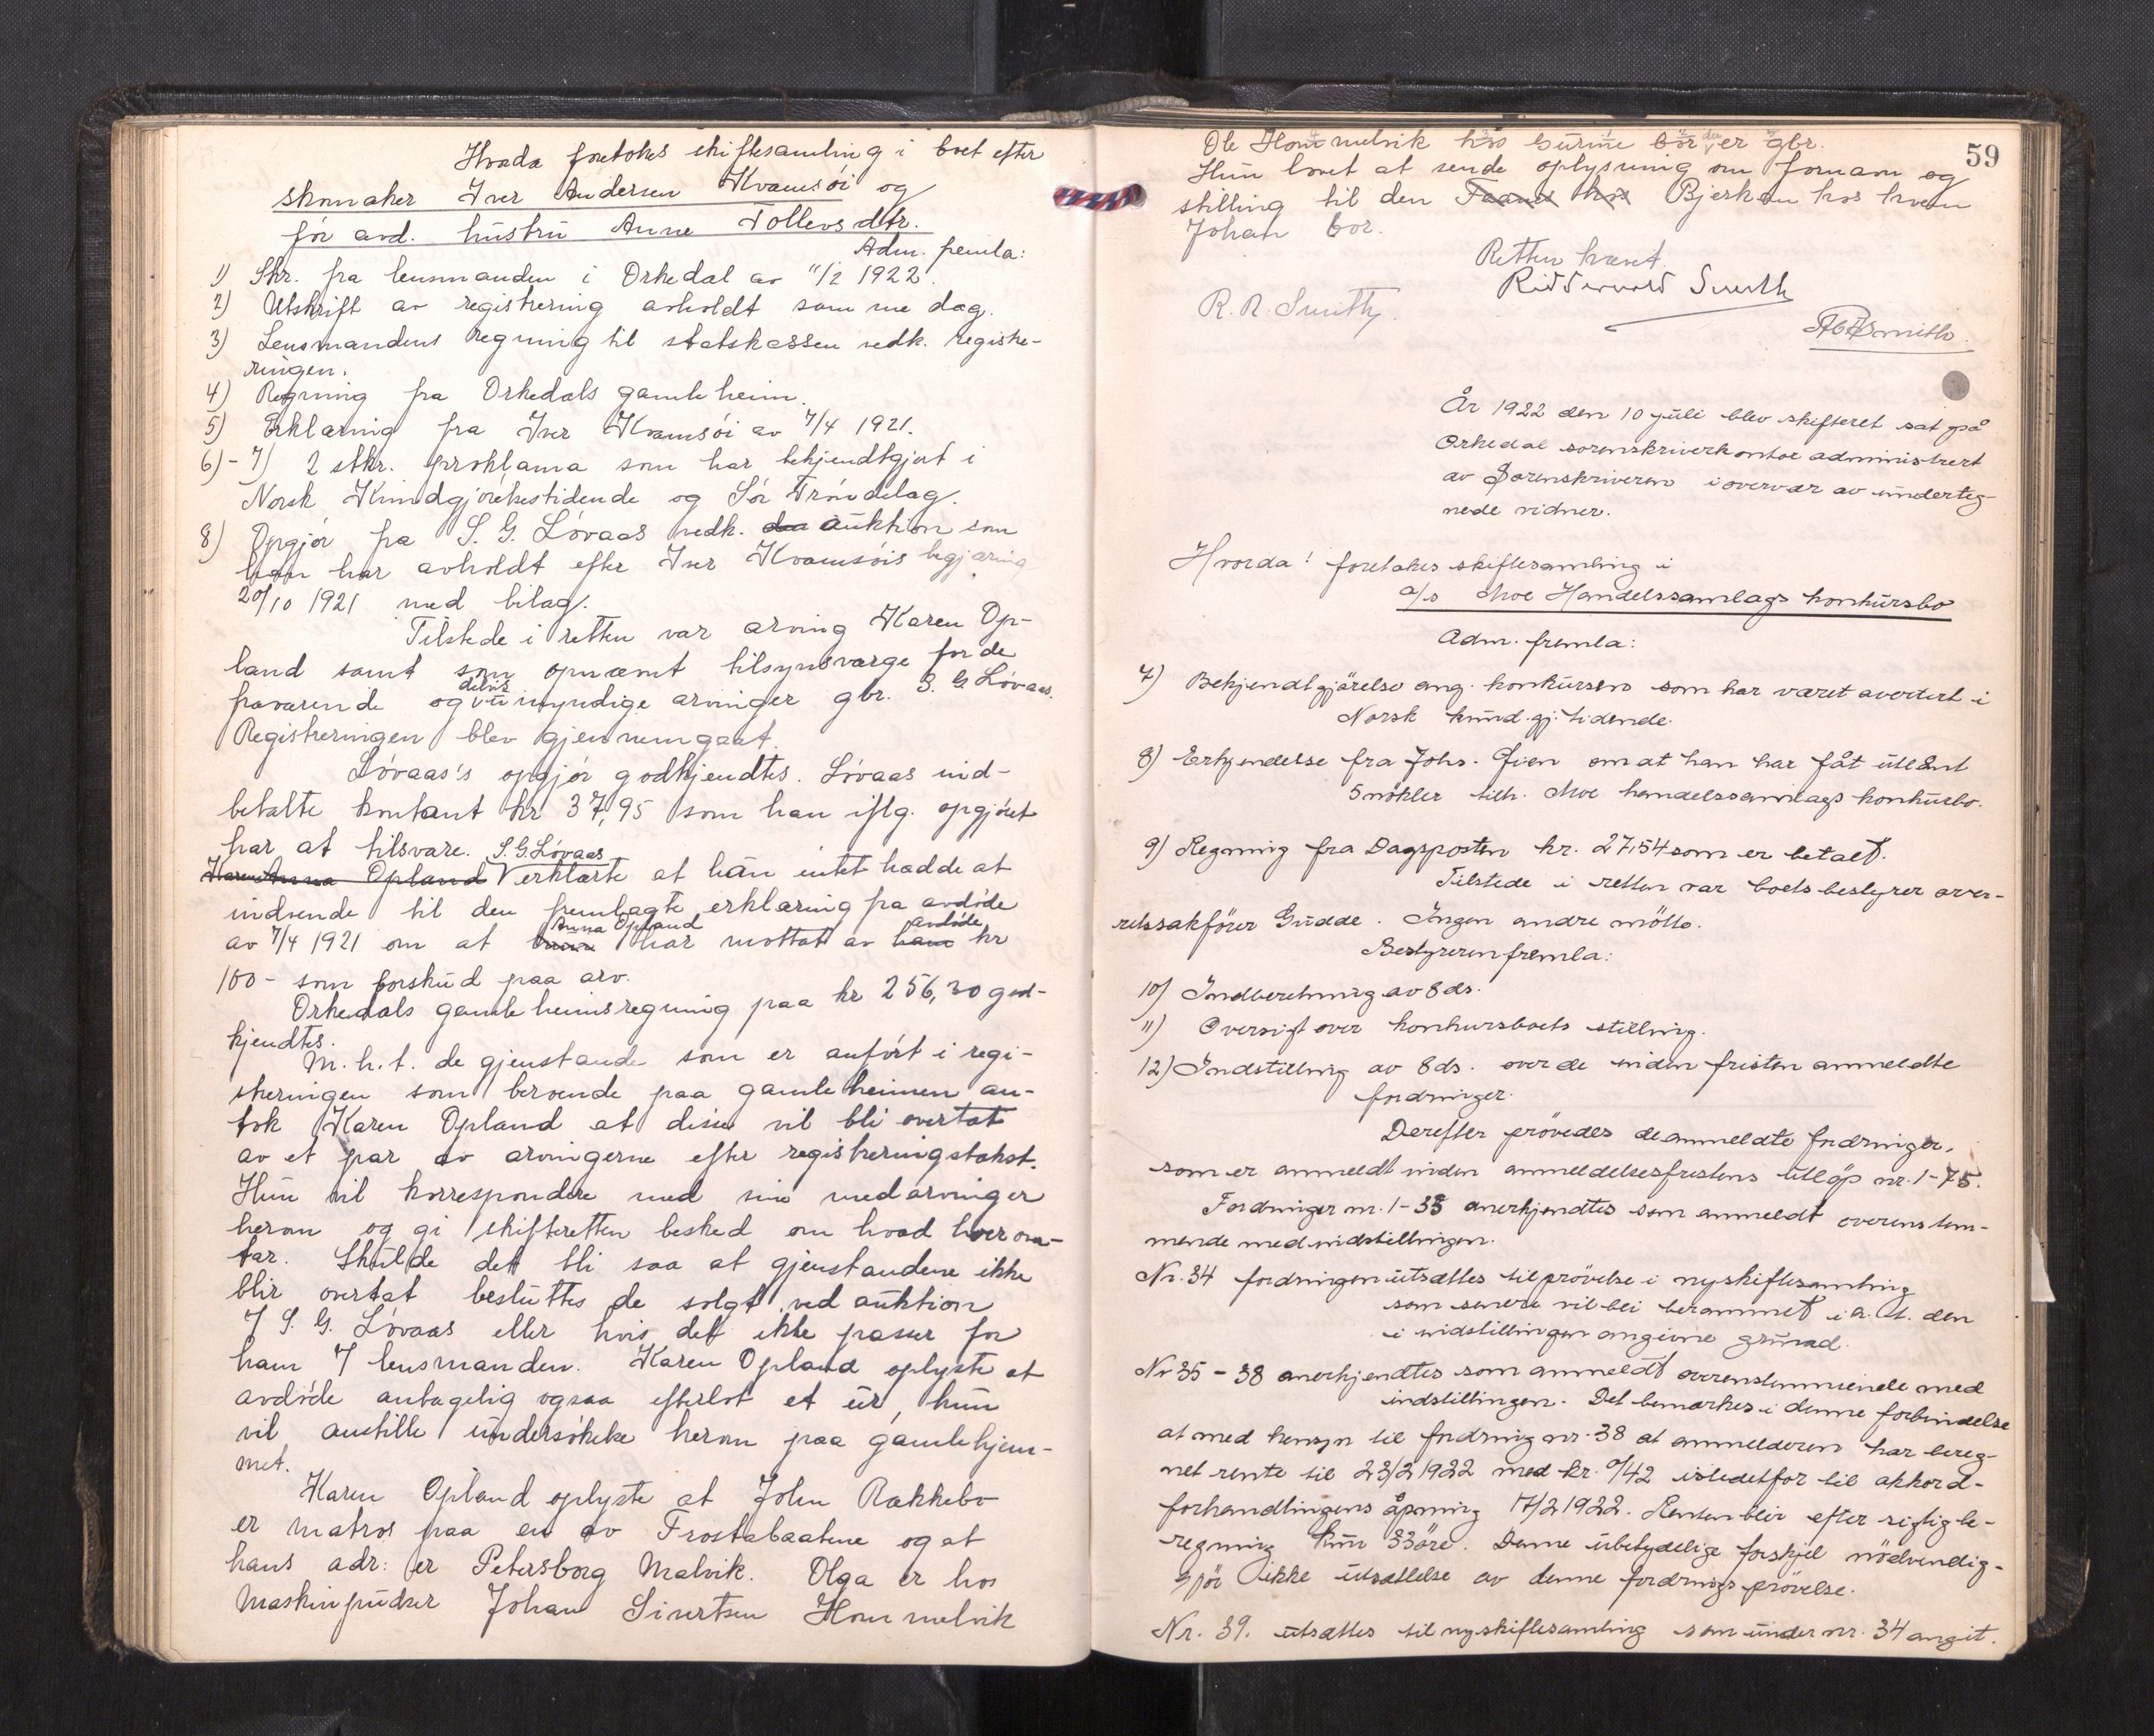 Hvorda foretokes skiftesamling i boet efter
skomaker Iver Andersen Kvamsöi og
för avd. hustru Anne Tollevsdtr.
Adm. fremla:
1) Skr. fra lensmanden i Orkedal av 11/2 1922.
2) Utskrift av registrering avholdt samme dag.
3) Lensmandens regning til statskassen vedk. registre-
ringen.
4) Regning fra Orkedals gamleheim.
5) Erklæring fra Iver Kvamsöi av 7/4 1921.
6)-7) 2 stkr. proklama som har bekjendtgjort i
Norsk Kundgjörelsestidende og Sör Tröndelag.
8) Opgjör fra S. G. Lövaas vedk. den auktion som
han har avholdt efter Iver Kvamsöis begjæring
20/10 1921 med bilag.
Tilstede i retten var arving Karen Op-
land samt som opnævnt tilsynsværge for de
fraværende og delvis umyndige arvinger gbr. S. G. Lövaas.
Registreringen blev gjennemgaat.
Lövaas's opgjör godkjendtes. Lövaas ind-
betalte kontant kr 37,95 som han iflg. opgjöret
har at tilsvare. S. G. Lövaas
Karen Anna Opland erklærte at han intet hadde at
indvende til den fremlagte erklæring fra avdöde
av 7/4 1921 om at Anna Opland har mottat av ham avdöde kr
100- som forskud paa arv.
Orkedals gamleheims regning paa kr 256,30 god-
kjendtes.
M.h.t. de gjenstande som er anfört i regi-
streringen som beroende paa gamleheimen an-
tok Karen Opland at disse vil bli overtat
av et par av arvingerne efter registreringstakst.
Hun vil korrespondere med sine medarvinger
herom og gi skifteretten besked om hvad hver over-
tar. Skulde det bli saa at gjenstandene ikke
blir overtat besluttes de solgt ved auktion
v/ S. G. Lövaas eller hvis det ikke passer for
ham v/ lensmanden. Karen Opland oplyste at
avdöde antagelig ogsaa efterlot et ur, hun
vil anstille undersökelse herom paa gamlehjem-
met.
Karen Opland oplyste at John Rækkebo
er matros paa en av Frostabaatene og at
hans adr: er Petersborg Malvik. Olga er hos
Maskinpudser Johan Sivertsen Hommelvik
59
Ole Hommelvik hos bor der er gbr.
Hun lovet at sende oplysning om fornavn og
stilling til den Faanes hos Bjerkan hos hvem
Johan bor.
Retten hævet.
Riddervold Smith
R. R. Smith
År 1922 den 10 juli blev skifteret sat på
Orkedal sorenskriverkontor administrert
av Sorenskriveren i overvær av underteg-
nede vidner.
Hvorda! foretokes skiftesamling i
a/s Moe Handelssamlags konkursbo
Adm. fremla:
7) Bekjendtgjörelse ang. konkursen som har været avertert i
Norsk kund.gj. tidende.
8) Erkjendelse fra Johs. Öien om at han har fåt utlånt
5 nökler tilh. Moe handelssamlags konkursbo.
9) Regning fra Dagsposten kr. 27,54 som er betalt.
Tilstede i retten var boets bestyrer over-
retssakförer Gudde. Ingen andre mötte.
Bestyreren fremla:
10) Indberetning av 8 ds.
11) Oversigt over konkursboets stilling.
12) Indstilling av 8 ds. over de inden fristen anmeldte
fordringer.
Derefter prövedes de anmeldte fordringer,
som er anmeldt inden anmeldelsesfristens utlöp nr. 1-75.
Fordringer nr. 1-33 anerkjendtes som anmeldt overenstem-
mende med indstillingen.
Nr. 34 fordringen utsættes til prövelse i ny skiftesamling
som senere vil bli berammet i a. h. t. den
i indstillingen angivne grund.
Nr 35-38 anerkjendtes som anmeldt overenstemmende med
indstillingen. Det bemerkes i denne forbindelse
at med hensyn til fordring nr. 38 at anmelderen har bereg-
net rente til 23/2 1922 med kr. 0/42 istedetfor til akkord-
forhandlingens åpning 17/2 1922. Renten blir efter rigtig be-
regning kun 33 öre. Denne ubetydelige forskjel nödvendig-
gjör ikke utsættelse av denne fordrings prövelse.
Nr. 39. utsættes til ny skiftesamling som under nr. 34 angit.